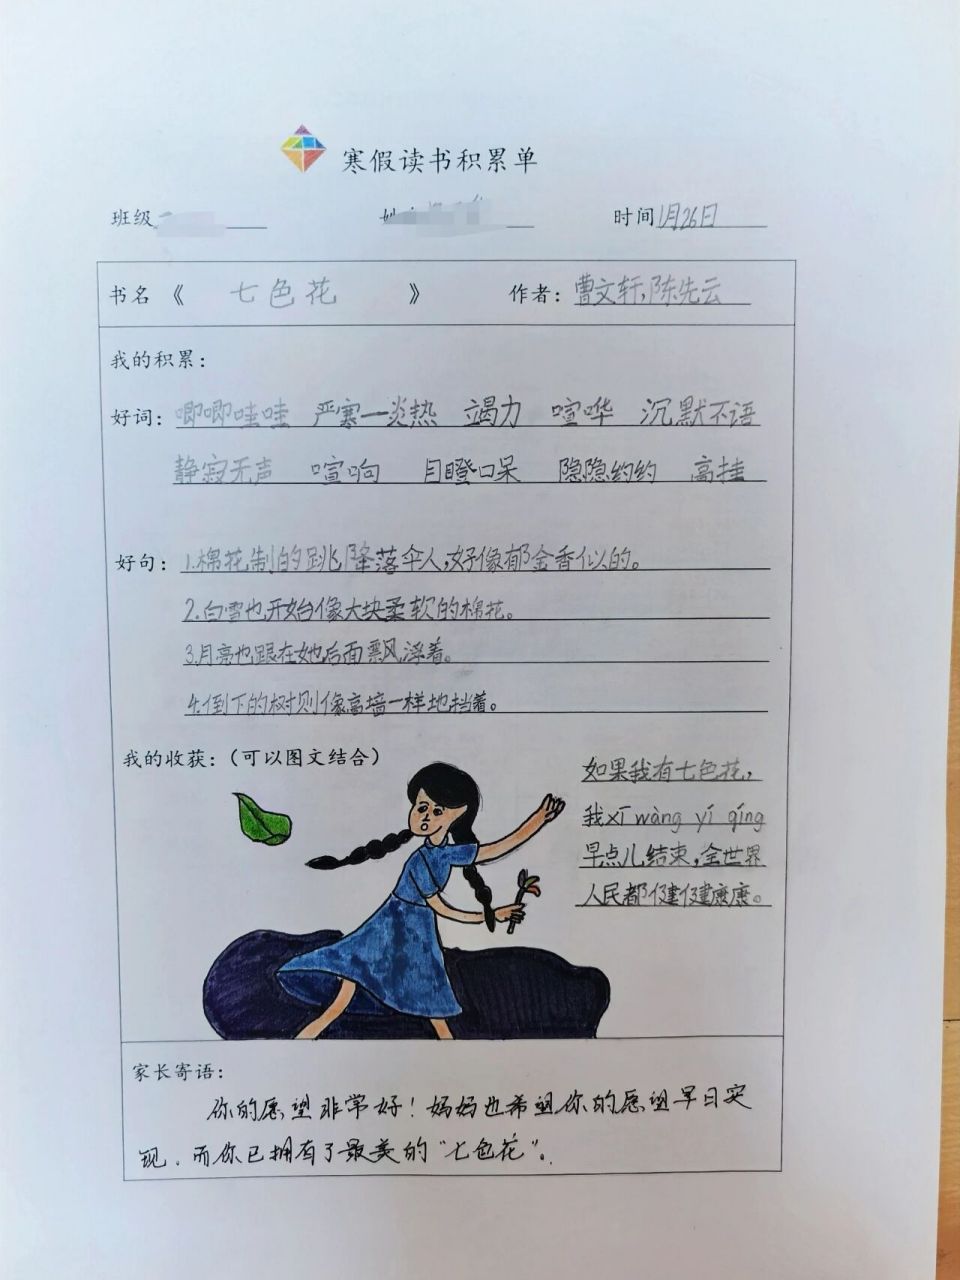 寒假读书积累单
班级 时间 1月26日
书名《 七色花 》 作者：曹文轩,陈先云
我的积累：
好词：唧唧哇哇 严寒—炎热 竭力 喧哗 沉默不语
静寂无声 喧响 目瞪口呆 隐隐约约 高挂
好句：1.棉花制的跳降落伞人,好像郁金香似的。
2.白雪也开始像大块柔软的棉花。
3.月亮也跟在她后面飘浮着。
4.倒下的树则像高墙一样地挡着。
我的收获：（可以图文结合）
如果我有七色花，
我xī wàng yí qíng
早点儿结束,全世界
人民都健健康康。
家长寄语：
你的愿望非常好！妈妈也希望你的愿望早日实
现。而你已拥有了最美的“七色花”。